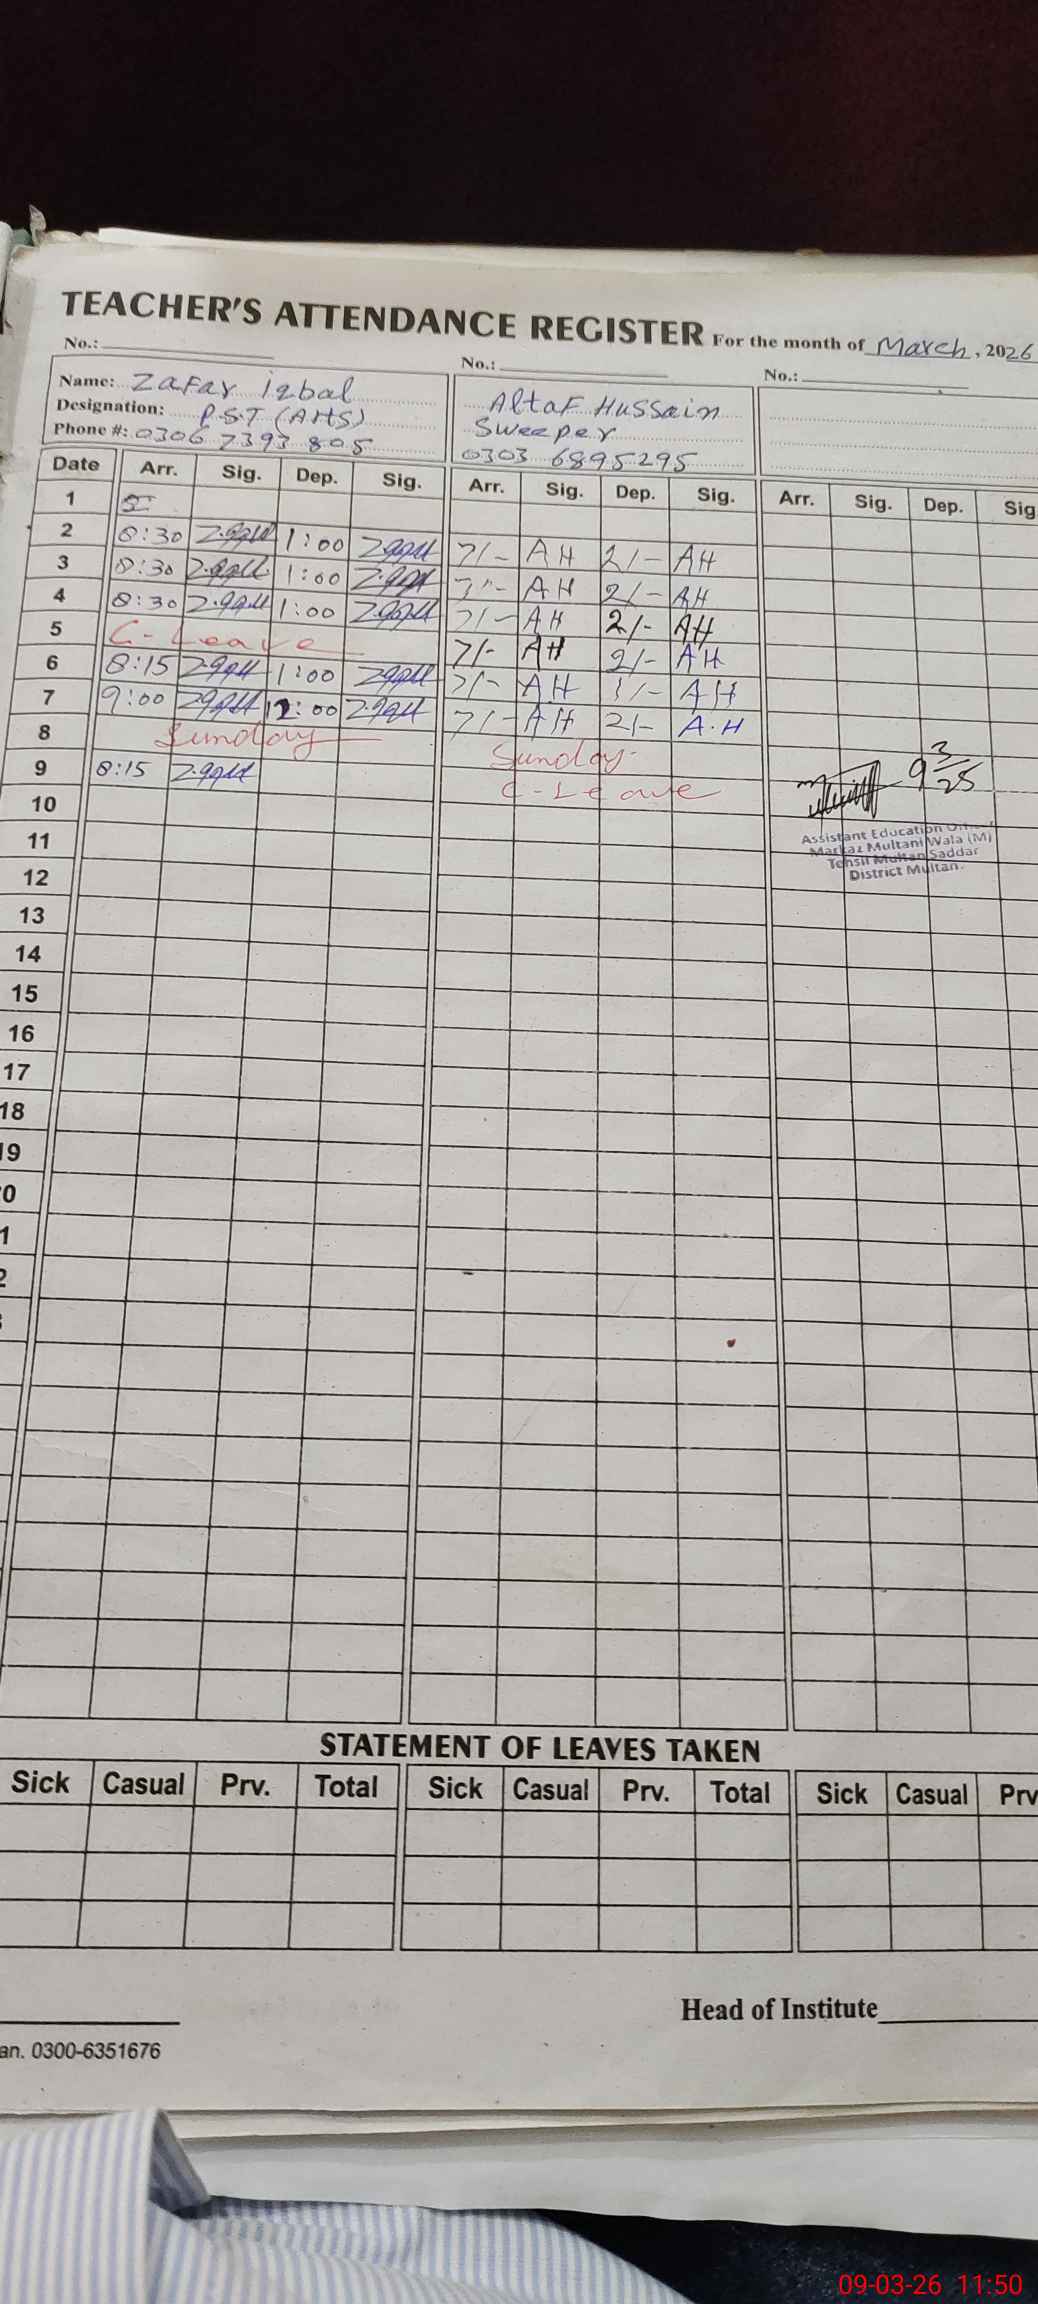 TEACHER'S ATTENDANCE REGISTER For the month of March, 2026
No.: No.: No.:
Name: Zafar iqbal
Designation: P.S.T (AHS)
Phone #: 0306 7393 805
Altaf Hussain
Sweeper
0303 6895295
Date Arr. Sig. Dep. Sig. Arr. Sig. Dep. Sig. Arr. Sig. Dep. Sig
1
2 8:30 1:00 7/- AH 2/- AH
3 8:30 1:00 7/- AH 2/- AH
4 8:30 1:00 7/- AH 2/- AH
5 C-Leave 7/- AH 2/- AH
6 8:15 1:00 7/- AH 1/- AH
7 9:00 12:00 7/- AH 2/- A.H
8 Sunday Sunday
9 8:15 C-Leave 9 3/25
10
11
12
13
14
15
16
17
18
19
Assistant Education
Markaz Multani Wala (M)
Tehsil Multan Saddar
District Multan.
STATEMENT OF LEAVES TAKEN
Sick Casual Prv. Total Sick Casual Prv. Total Sick Casual Prv
Head of Institute
an. 0300-6351676
09-03-26 11:50